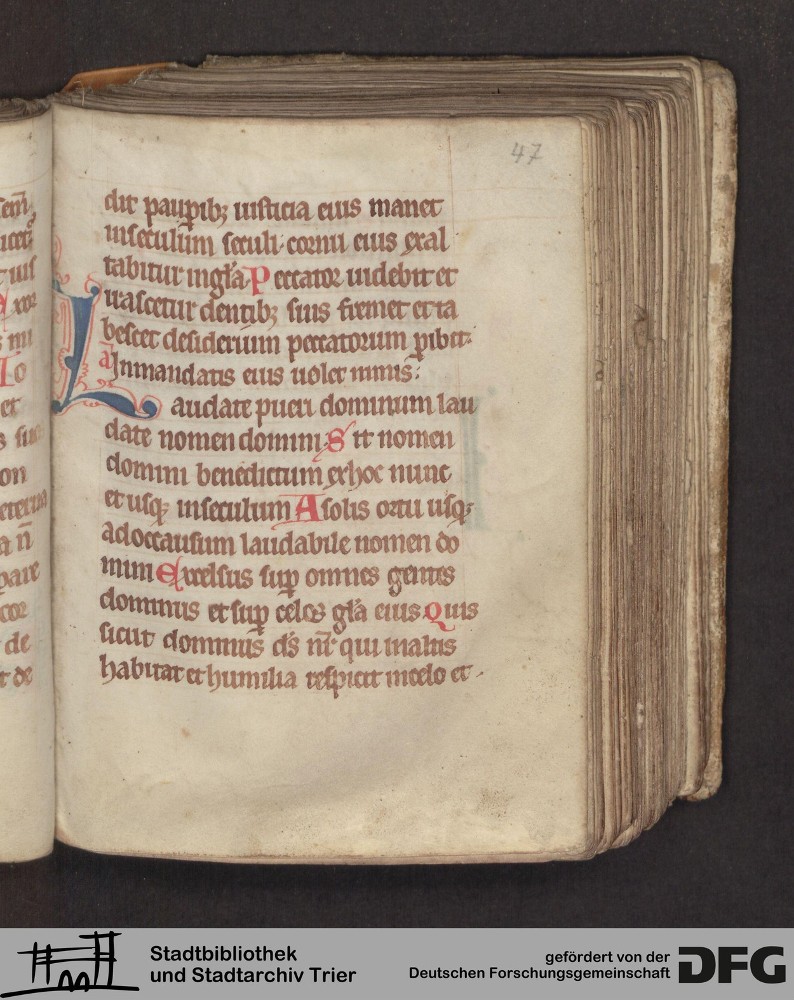 47
dit paup̱ib; iusticia eius manet
inseculum seculi cornu eius exal
tabitur inglã Peccator uidebit et
irascetur dentib; suis fremet et ta
bescet desiderium peccatorum ꝑibit:
a Inmandatis eius uolet nimis:
Laudate pueri dominum lau
date nomen domini Sit nomen
domini benedictum exhoc nunc
et usq; inseculum A solis ortu usq;
adoccasum laudabile nomen do
mini Excelsus suꝑ omnes gentes
dominus et suꝑ celos glã eius Quis
sicut dominus ds̄ nr̄ qui inaltis
habitat et humilia respicit incelo et
Stadtbibliothek
und Stadtarchiv Trier
gefördert von der
Deutschen Forschungsgemeinschaft
DFG